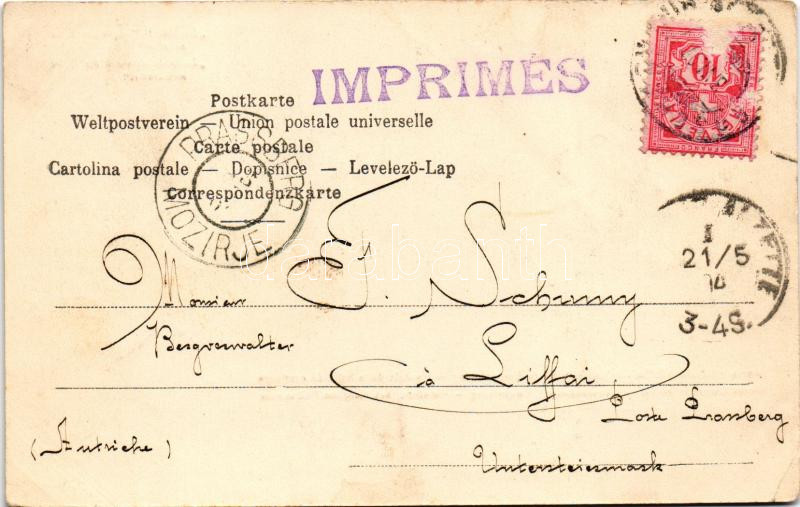 IMPRIMÉS
Postkarte
Weltpostverein — Union postale universelle
Carte postale
Cartolina postale — Dopisnice — Levelezö-Lap
Correspondenzkarte
PRASSBERG
MOZIRJE
10
HELVETIA
FRANCO
21/5
3-4S.
Monsieur
F. Schumy
Bergverwalter
à Liffai
Poste Prassberg
(Autriche)
Untersteiermark
darabanth